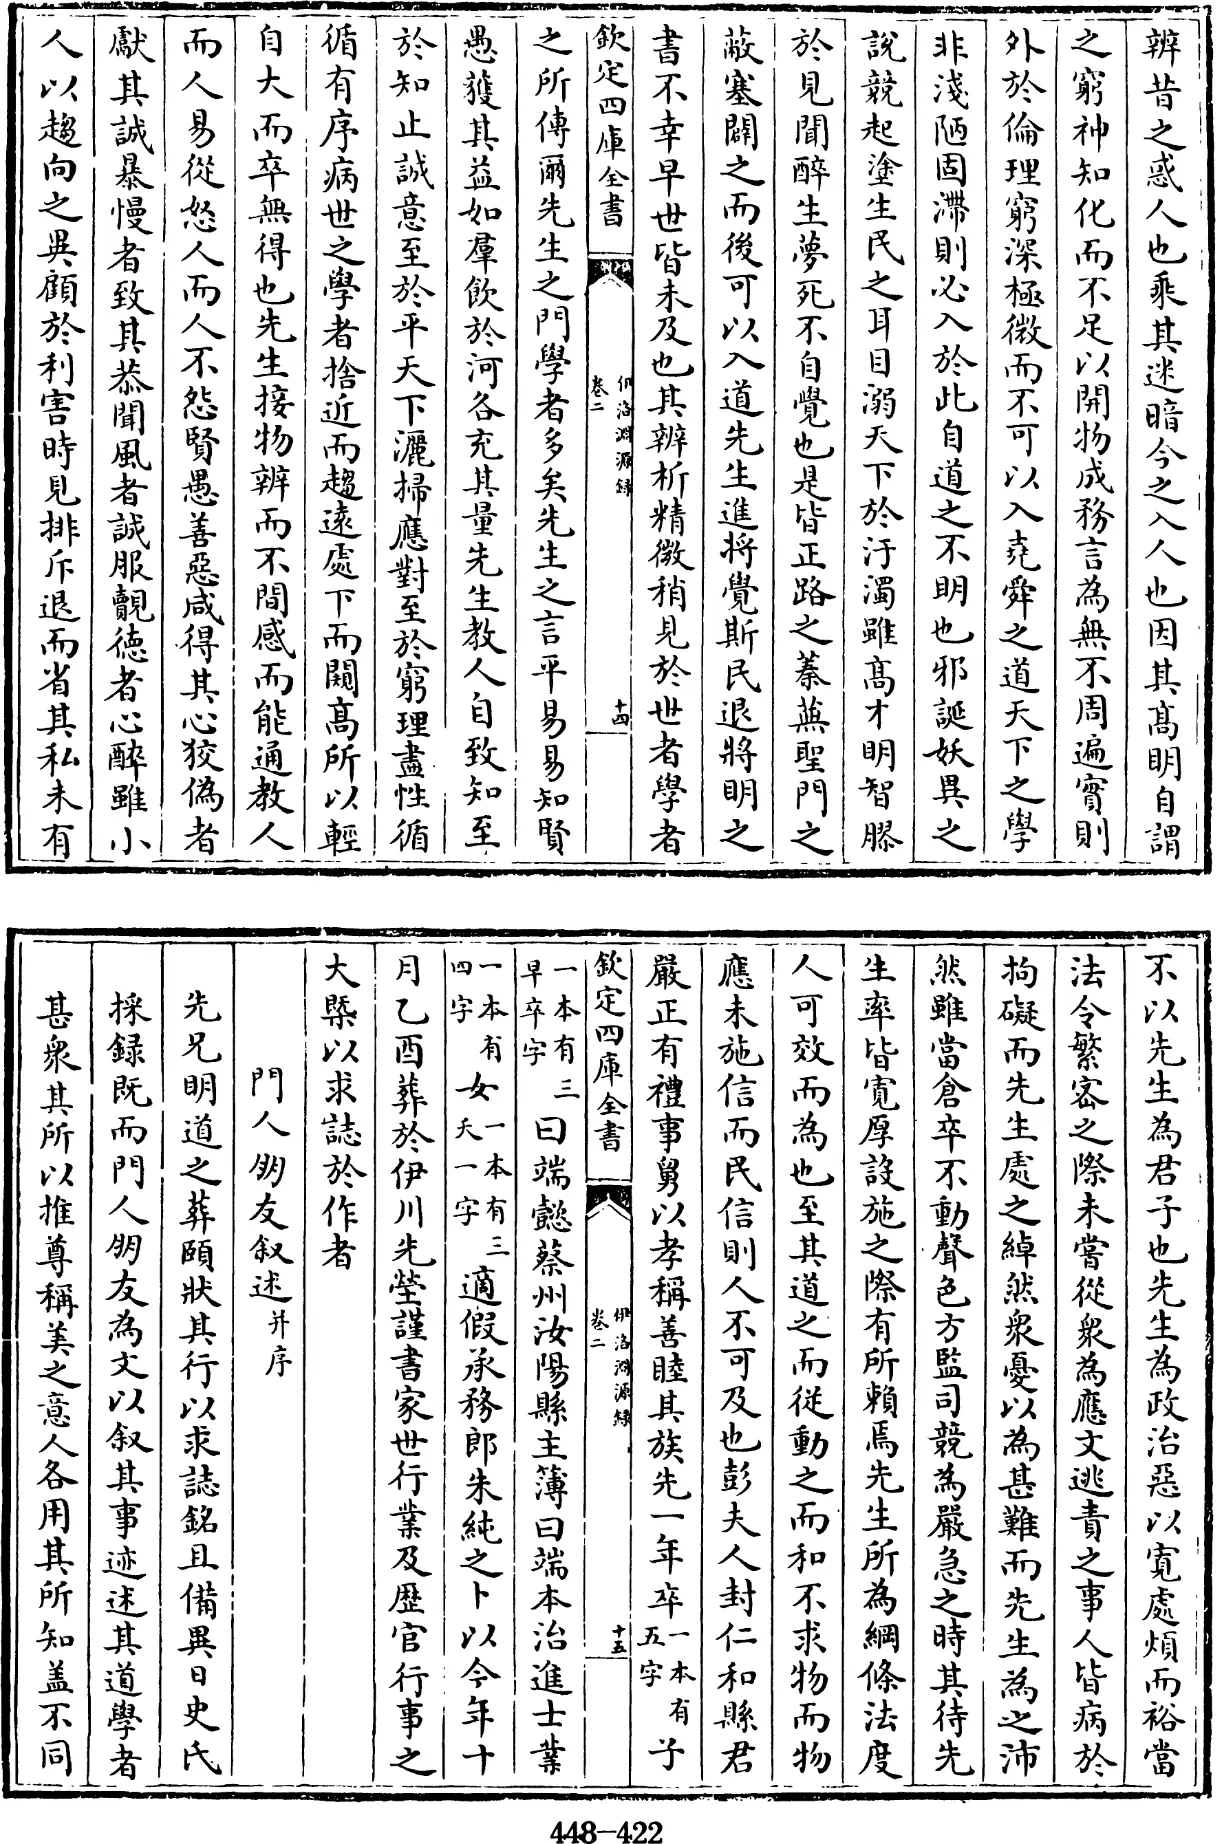 辨昔之惑人也乘其迷暗今之入人也因其髙明自謂
之窮神知化而不足以開物成務言為無不周遍實則
外於倫理窮深極微而不可以入堯舜之道天下之學
非淺陋固滯則必入於此自道之不明也邪誕妖異之
說競起塗生民之耳目溺天下於汙濁雖髙才明智膠
於見聞醉生夢死不自覺也是皆正路之蓁蕪聖門之
蔽塞闢之而後可以入道先生進將覺斯民退將明之
書不幸早世皆未及也其辨析精微稍見於世者學者
欽定四庫全書
伊洛淵源録
卷二
十四
之所傳爾先生之門學者多矣先生之言平易易知賢
愚獲其益如羣飲於河各充其量先生教人自致知至
於知止誠意至於平天下灑掃應對至於窮理盡性循
循有序病世之學者捨近而趨遠處下而闚髙所以輕
自大而卒無得也先生接物辨而不間感而能通教人
而人易從怒人而人不怨賢愚善惡咸得其心狡偽者
獻其誠暴慢者致其恭聞風者誠服覿徳者心醉雖小
人以趨向之異顧於利害時見排斥退而省其私未有
不以先生為君子也先生為政治惡以寛處煩而裕當
法令繁宻之際未嘗從衆為應文逃責之事人皆病於
拘礙而先生處之綽然衆憂以為甚難而先生為之沛
然雖當倉卒不動聲色方監司競為嚴急之時其待先
生率皆寛厚設施之際有所賴焉先生所為綱條法度
人可效而為也至其道之而從動之而和不求物而物
應未施信而民信則人不可及也彭夫人封仁和縣君
嚴正有禮事舅以孝稱善睦其族先一年卒一本有五字子
欽定四庫全書
伊洛淵源録
卷二
十五
一本有三早卒字曰端懿蔡州汝陽縣主簿曰端本治進士業
一本有四字女一本有三夭一字適假承務郎朱純之卜以今年十
月乙酉葬於伊川先塋謹書家世行業及歴官行事之
大槩以求誌於作者
門人朋友叙述并序
先兄明道之葬頤狀其行以求誌銘且備異日史氏
採録既而門人朋友為文以叙其事迹述其道學者
甚衆其所以推尊稱美之意人各用其所知盖不同
448-422